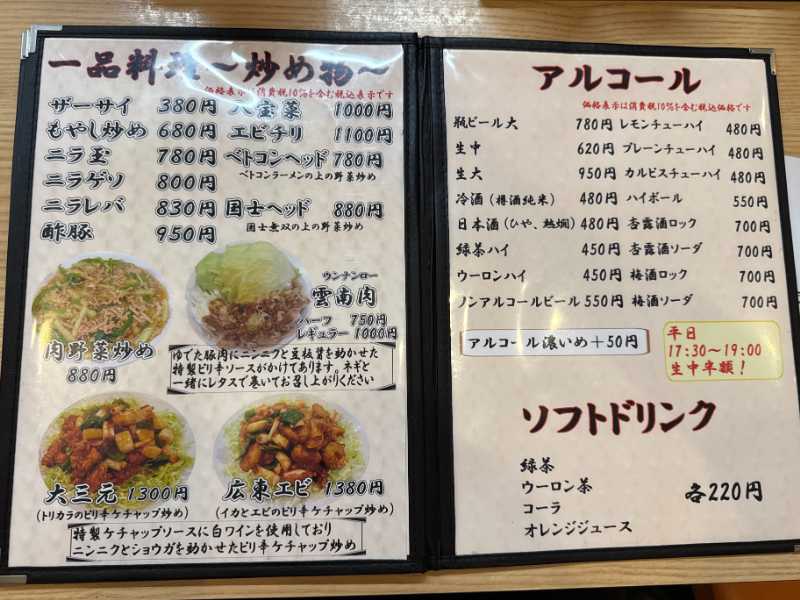 一品料理～炒め物～
価格表示は消費税10%を含む税込表示です
ザーサイ 380円
もやし炒め 680円
ニラ玉 780円
ニラゲソ 800円
ニラレバ 830円
酢豚 950円
八宝菜 1000円
エビチリ 1100円
ベトコンヘッド 780円
ベトコンラーメンの上の野菜炒め
国士ヘッド 880円
国士無双の上の野菜炒め
肉野菜炒め
880円
ウンナンロー
雲南肉
ハーフ 750円
レギュラー 1000円
ゆでた豚肉にニンニクと豆板醤を効かせた
特製ピリ辛ソースがかけてあります。ネギと
一緒にレタスで巻いてお召し上がりください
大三元 1300円
(トリカラのピリ辛ケチャップ炒め)
広東エビ 1380円
(イカとエビのピリ辛ケチャップ炒め)
特製ケチャップソースに白ワインを使用しており
ニンニクとショウガを効かせたピリ辛ケチャップ炒め
アルコール
価格表示は消費税10%を含む税込価格です
瓶ビール大 780円
生中 620円
生大 950円
冷酒(樽酒純米) 480円
日本酒(ひや、熱燗) 480円
緑茶ハイ 450円
ウーロンハイ 450円
ノンアルコールビール 550円
レモンチューハイ 480円
プレーンチューハイ 480円
カルピスチューハイ 480円
ハイボール 550円
杏露酒ロック 700円
杏露酒ソーダ 700円
梅酒ロック 700円
梅酒ソーダ 700円
アルコール濃いめ+50円
平日
17:30～19:00
生中半額!
ソフトドリンク
緑茶
ウーロン茶
コーラ
オレンジジュース
各220円